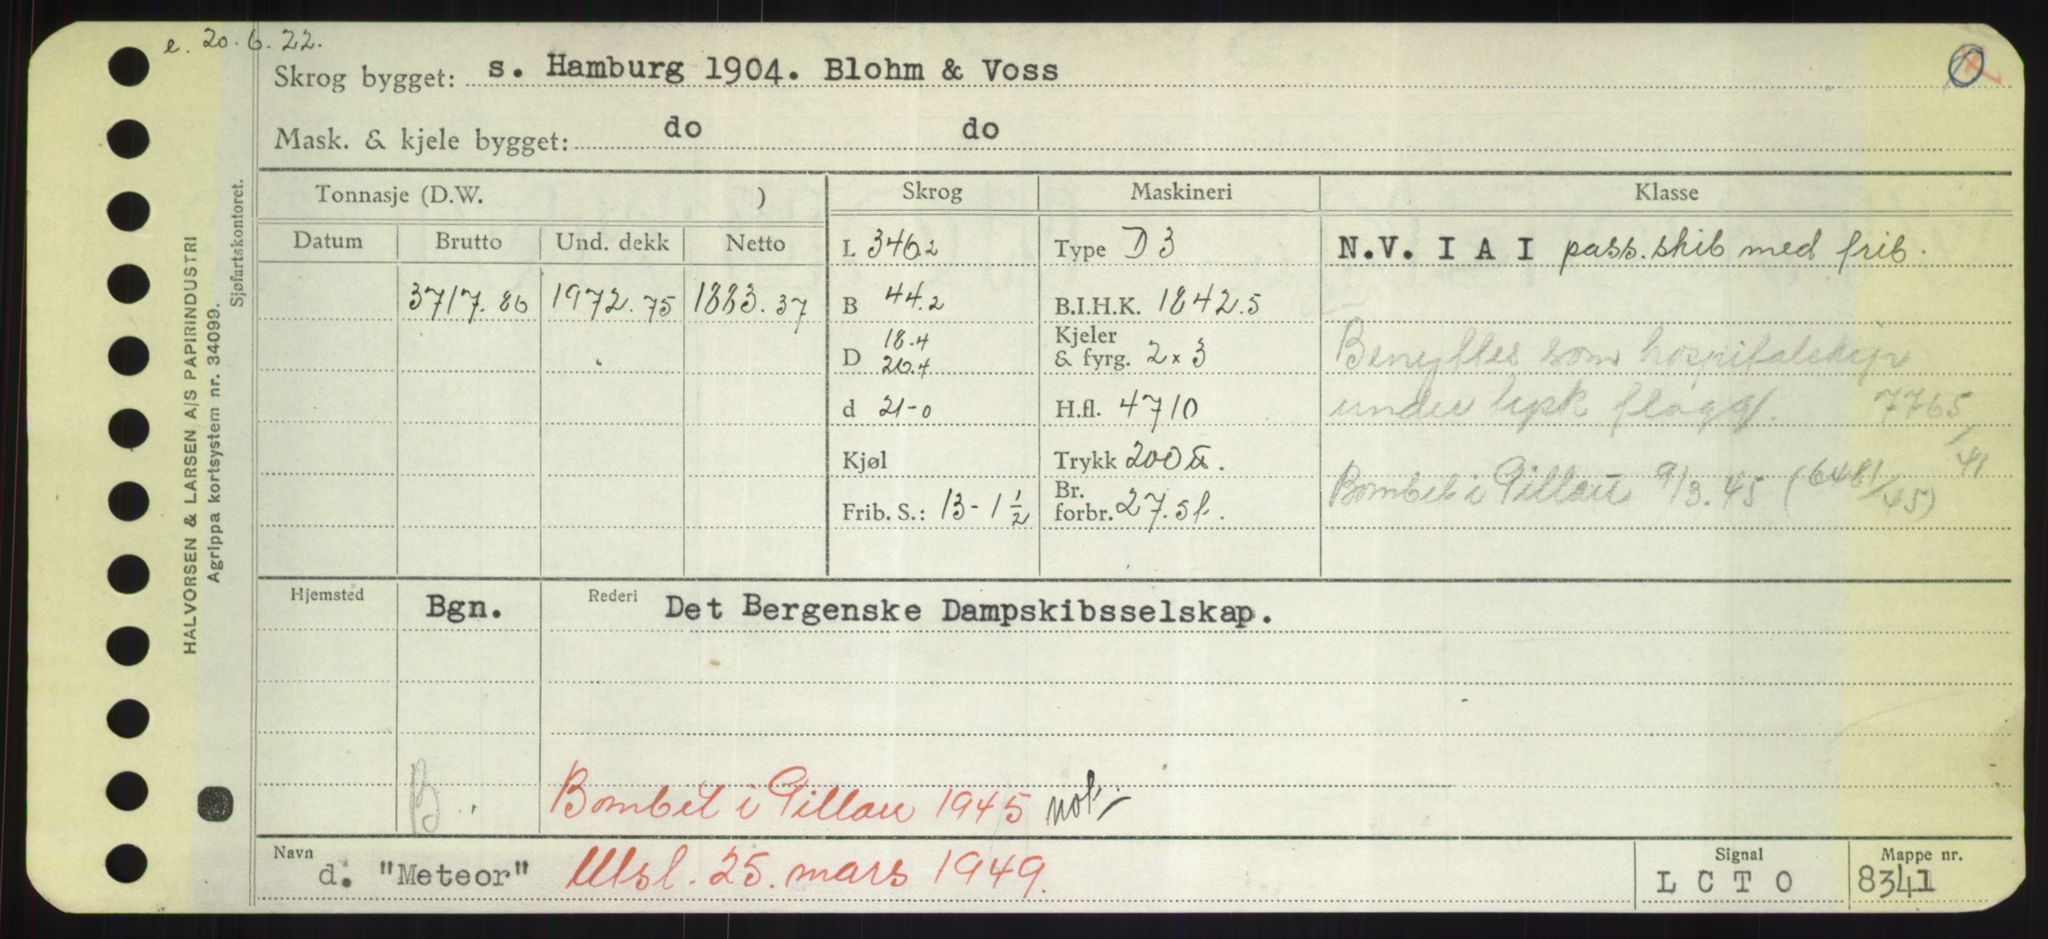 e. 20.6.22.
Skrog bygget: s. Hamburg 1904. Blohm & Voss
Mask. & kjele bygget: do do
Tonnasje (D.W. ) Skrog Maskineri Klasse
Datum Brutto Und. dekk Netto L 346.2 Type D 3 N.V. I A I pass.skib med frib.
3717.86 1972.75 1883.37 B 44.2 B.I.H.K. 1842.5
D 18.4 20.4 Kjeler & fyrg. 2 x 3 Benyttes som hospitalskip
d 21-0 H.fl. 4710 under tysk flagg. 7765/41
Kjøl Trykk 200 lb.
Frib. S.: 13-1 1/2 Br. forbr. 27.5 t. Bombet i Pillau 9/3.45 (6481/45)
Hjemsted Bgn. Rederi Det Bergenske Dampskibsselskap.
B.. Bombet i Pillau 1945 not.
Navn d. "Meteor" Utsl. 25. mars 1949. Signal L C T O Mappe nr. 8341
Sjøfartskontoret.
HALVORSEN & LARSEN A/S PAPIRINDUSTRI
Agrippa kortsystem nr. 34099.